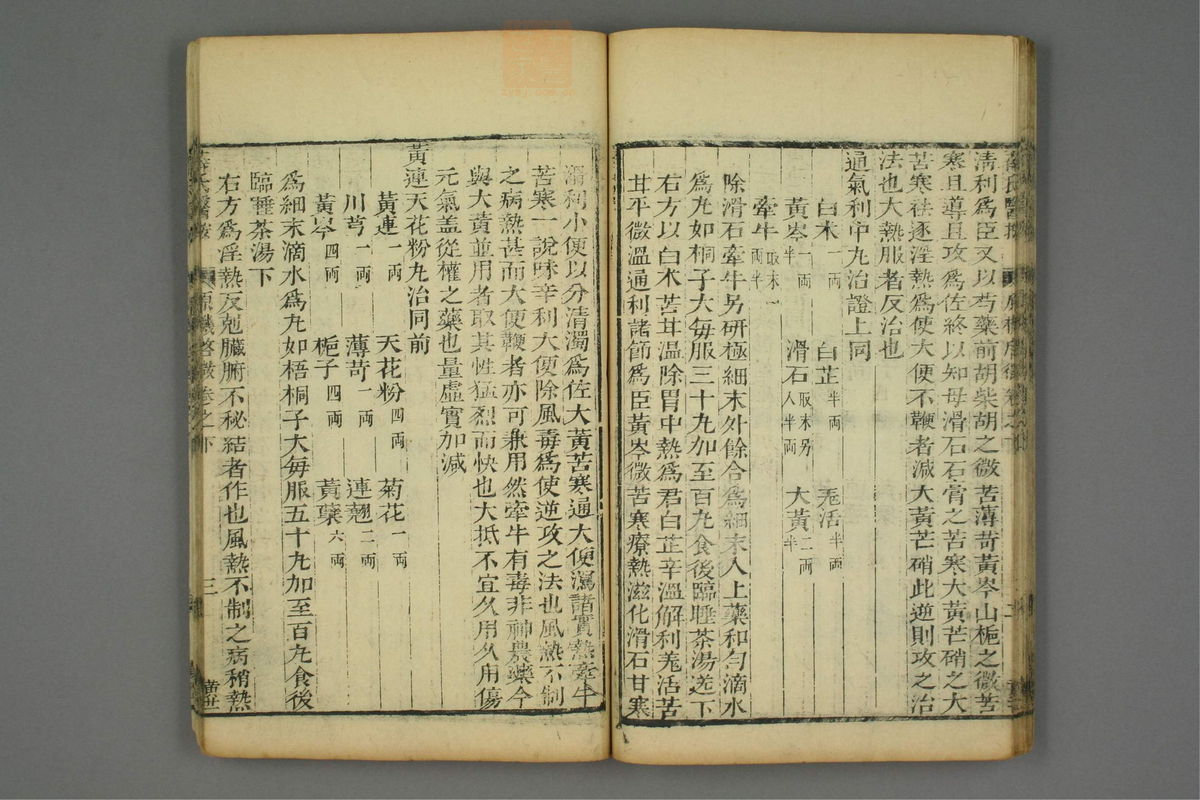 清利爲臣又以芍藥前胡柴胡之微苦薄苛黃岑山栀之微苦
寒且導且攻爲佐終以知母滑石石膏之苦寒大黃芒硝之大
苦寒祛逐淫熱爲使大便不鞕者减大黃芒硝此逆則攻之治
法也大熱服者反治也
通氣利中丸治證上同
白术一兩 白芷半兩 羗活半兩
黃岑一兩半 滑石取末另入半兩 大黃二兩半
牽牛取末一兩半
除滑石牽牛另硏極細末外餘合爲細末入上藥和匀滴水
爲丸如桐子大每服三十丸加至百丸食後臨睡茶湯送下
右方以白术苦甘溫除胃中熱爲君白芷辛溫解利羗活苦
甘平微溫通利諸節爲臣黃岑微苦寒療熱滋化滑石甘寒
滑利小便以分清濁爲佐大黃苦寒通大便瀉諸實熱牽牛
苦寒一說味辛利大便除風毒爲使逆攻之法也風熱不制
之病熱甚而大便鞕者亦可兼用然牽牛有毒非神農藥今
與大黃並用者取其性猛烈而快也大抵不宜久用久用傷
元氣盖從權之藥也量虛實加减
黃連天花粉丸治同前
黃連一兩 天花粉四兩 菊花一兩
川芎一兩 薄苛一兩 連翹二兩
黃岑四兩 栀子四兩 黃蘗六兩
爲細末滴水爲丸如梧桐子大每服五十丸加至百丸食後
臨睡茶湯下
右方爲淫熱反剋臟腑不秘結者作也風熱不制之病稍熱
原機啓微卷之下
三